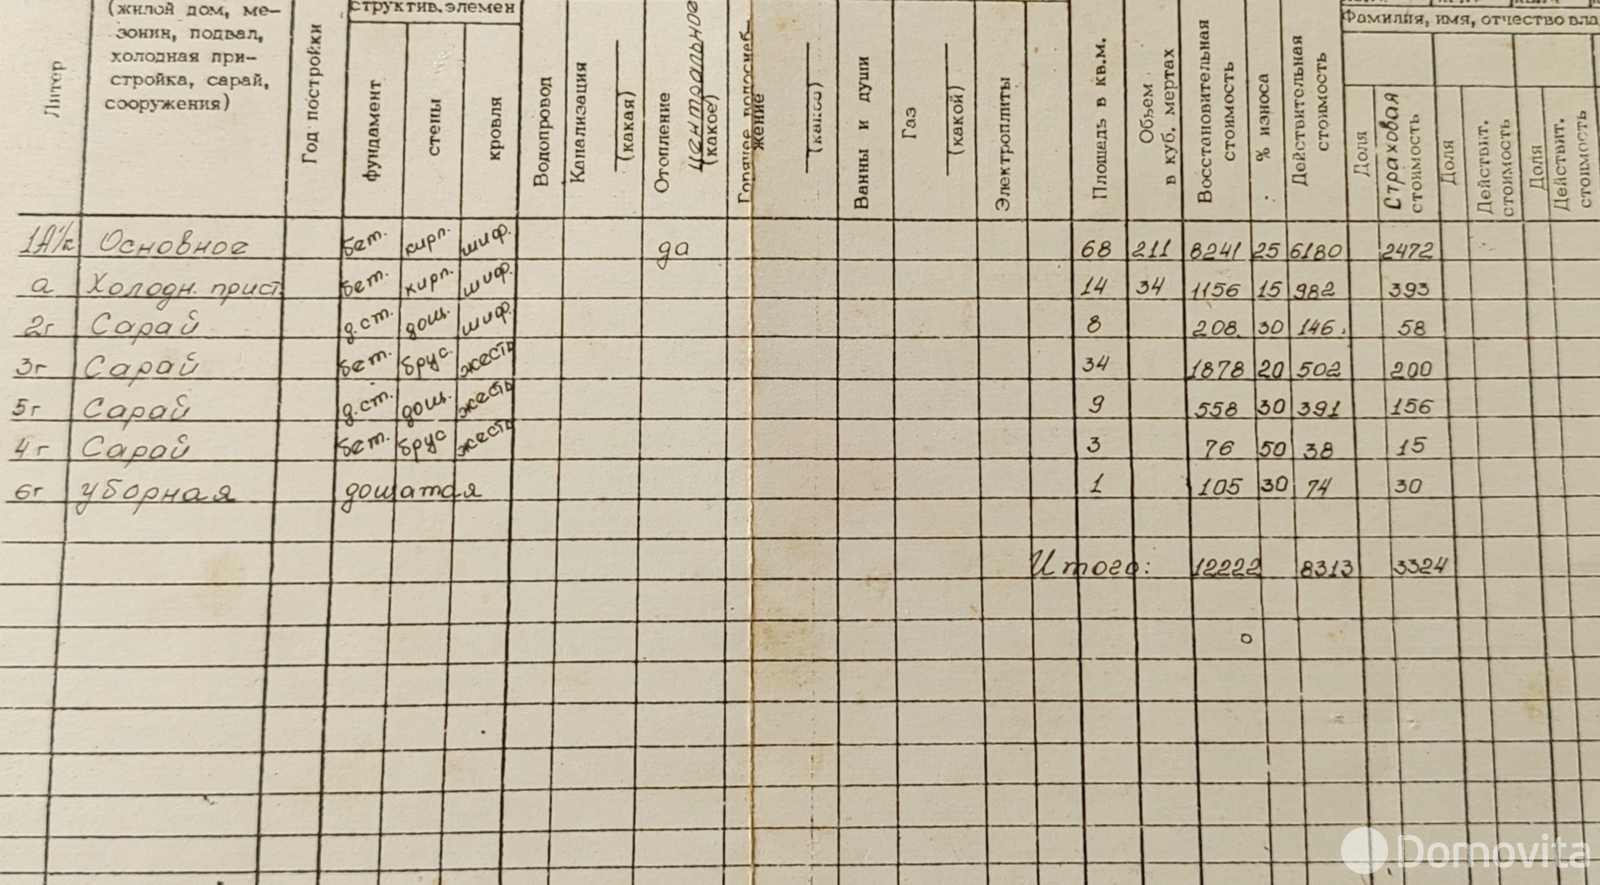 (жилой дом, ме-
зонин, подвал,
холодная при-
стройка, сарай,
сооружения)
Литер
Год постройки
структив. элемен
фундамент
стены
кровля
Водопровод
Канализация
(какая)
Отопление
центральное
(какое)
Горячее водоснеб-
жение
(какое)
Ванны и души
Газ
(какой)
Электроплиты
Площедь в кв.м.
Объем
в куб. мертах
Восстановительная
стоимость
% износа
Действительная
стоимость
Фамилия, имя, отчество вла
Доля
Страховая
стоимость
Доля
Действит.
стоимость
Доля
Действит.
стоимость
1А1/к Основное бет. кирп. шиф. да 68 211 8241 25 6180 2472
а Холодн. прист. бет. кирп. шиф. 14 34 1156 15 982 393
2г Сарай д.ст. дощ. шиф. 8 208 30 146 58
3г Сарай бет. брус. жесть 34 1878 20 502 200
5г Сарай д.ст. дощ. жесть 9 558 30 391 156
4г Сарай бет. брус жесть 3 76 50 38 15
6г уборная дощатая 1 105 30 74 30
Итого: 12222 8313 3324
Domovita